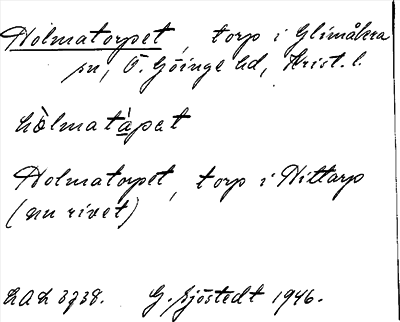 Holmatorpet, torp i Glimåkra
sn, Ö. Göinge hd, Krist. l.
hòlmatàpet
Holmatorpet, torp i Hittarp
(nu rivet)
LAL 3738. G. Sjöstedt 1946.